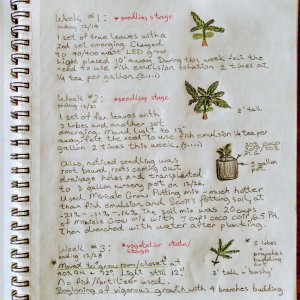 Week #1: * seedling stage
ending 12/14
1 set of true leaves with a
2nd set emerging. Changed
to 40/400 watt LED grow
light placed 10" away. During this week felt the
need to use fish emulsion solution 2 times at
1/4 tea per gallon. (2-1-1)
Week #2: * seedling stage
ending 12/21
1 set of fan leaves with
3 lobes and another set
emerging. Moved light to 12"
away. Felt the need to use fish emulsion 1/4 tea per
gallon 2 times this week. (2-1-1)
2" tall
Also, noticed seedling was
root bound, roots coming out
drainage holes and transplanted
to 3 gallon nursery pot on
Used Miracle Grow Potting mix – much hotter
than fish emulsion and Scott's potting soil, at
.21% - .11% - .16%. The soil mix was 20 cups
of Miracle Grow mix with 7 cups
Then drenched with water after planting.
3 gallon
pot
Week #3: * vegetative state/
ending 12/28 stage
Moved to grow room/closet at
Light still 12"
No fish/fertilizer used.
Beginning of vigorous growth with 4 branches budding.
5 lobes
branches
budding
out
3" tall + bushy